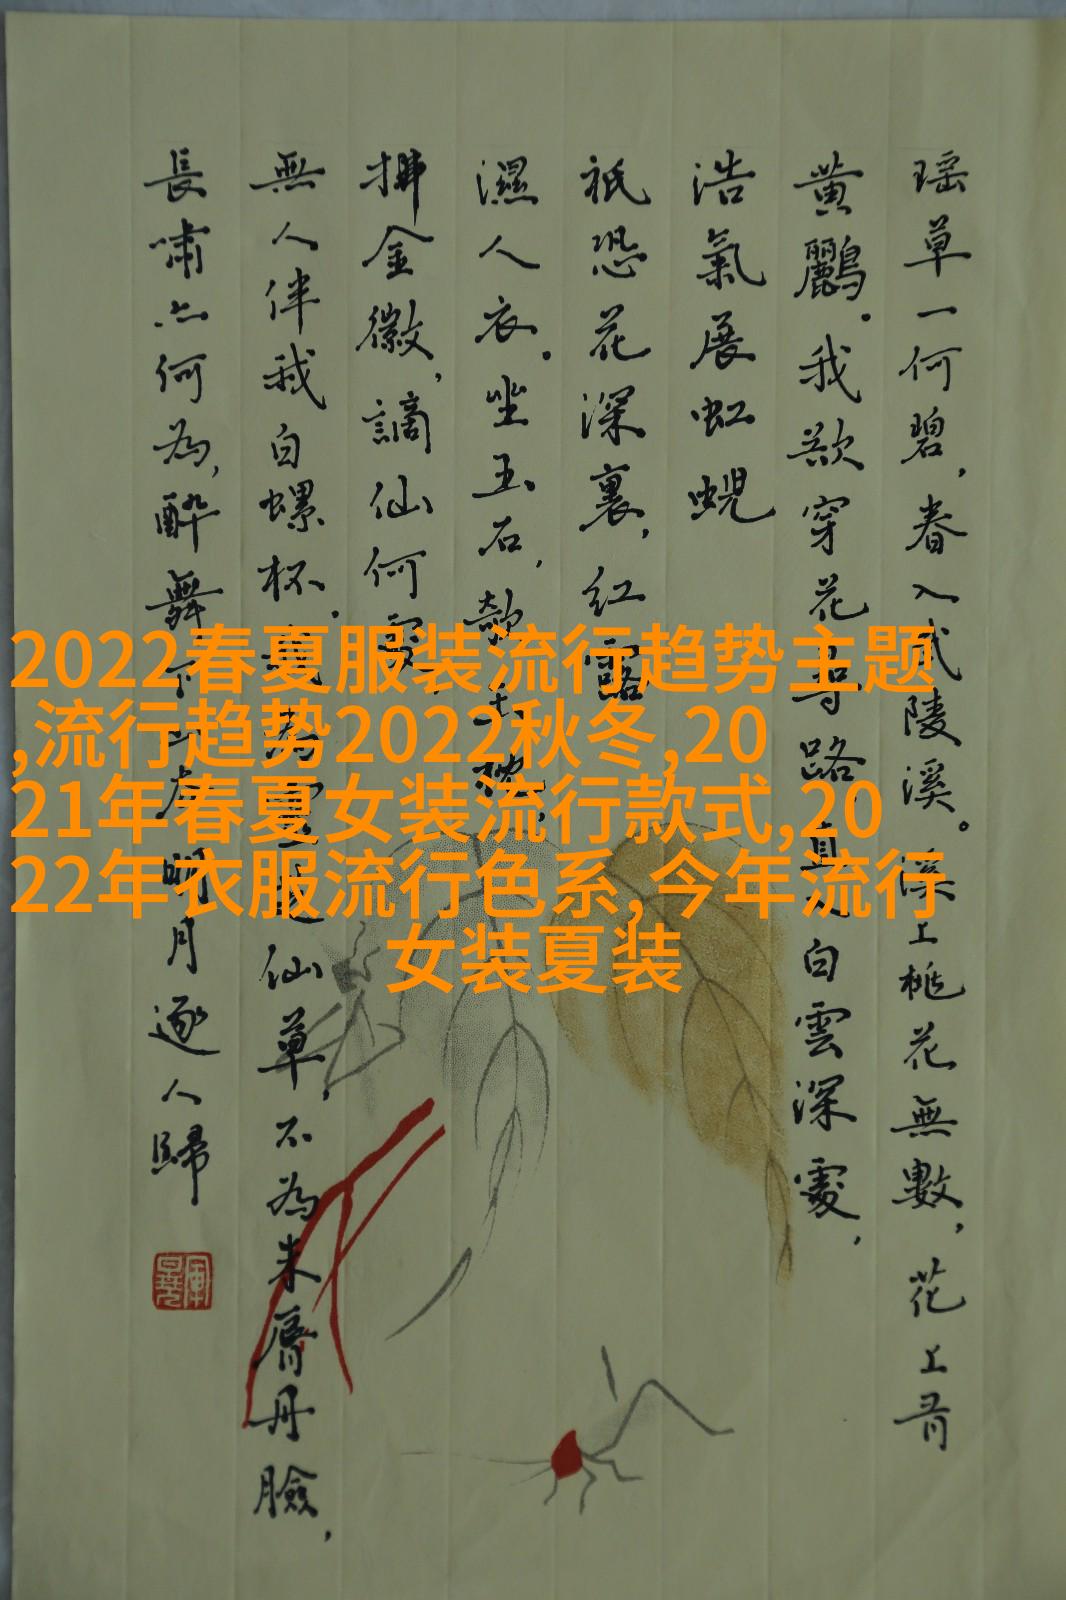 瑶草一何碧,春入武陵溪。溪上桃花無數,花上有
黄鸝。我欲穿花尋路,直入白雲深處,
浩氣展虹蜺
祇恐花深裏,紅露
濕人衣。坐玉石,欹玉枕,
拂金徽,謫仙何處,
無人伴我白螺杯。我為靈芝仙草,不為朱脣丹臉,
長嘯亦何為,醉舞下山去,明月逐人歸
2022春夏服装流行趋势主题
,流行趋势2022秋冬,20
21年春夏女装流行款式,20
22年衣服流行色系,今年流行
女装夏装